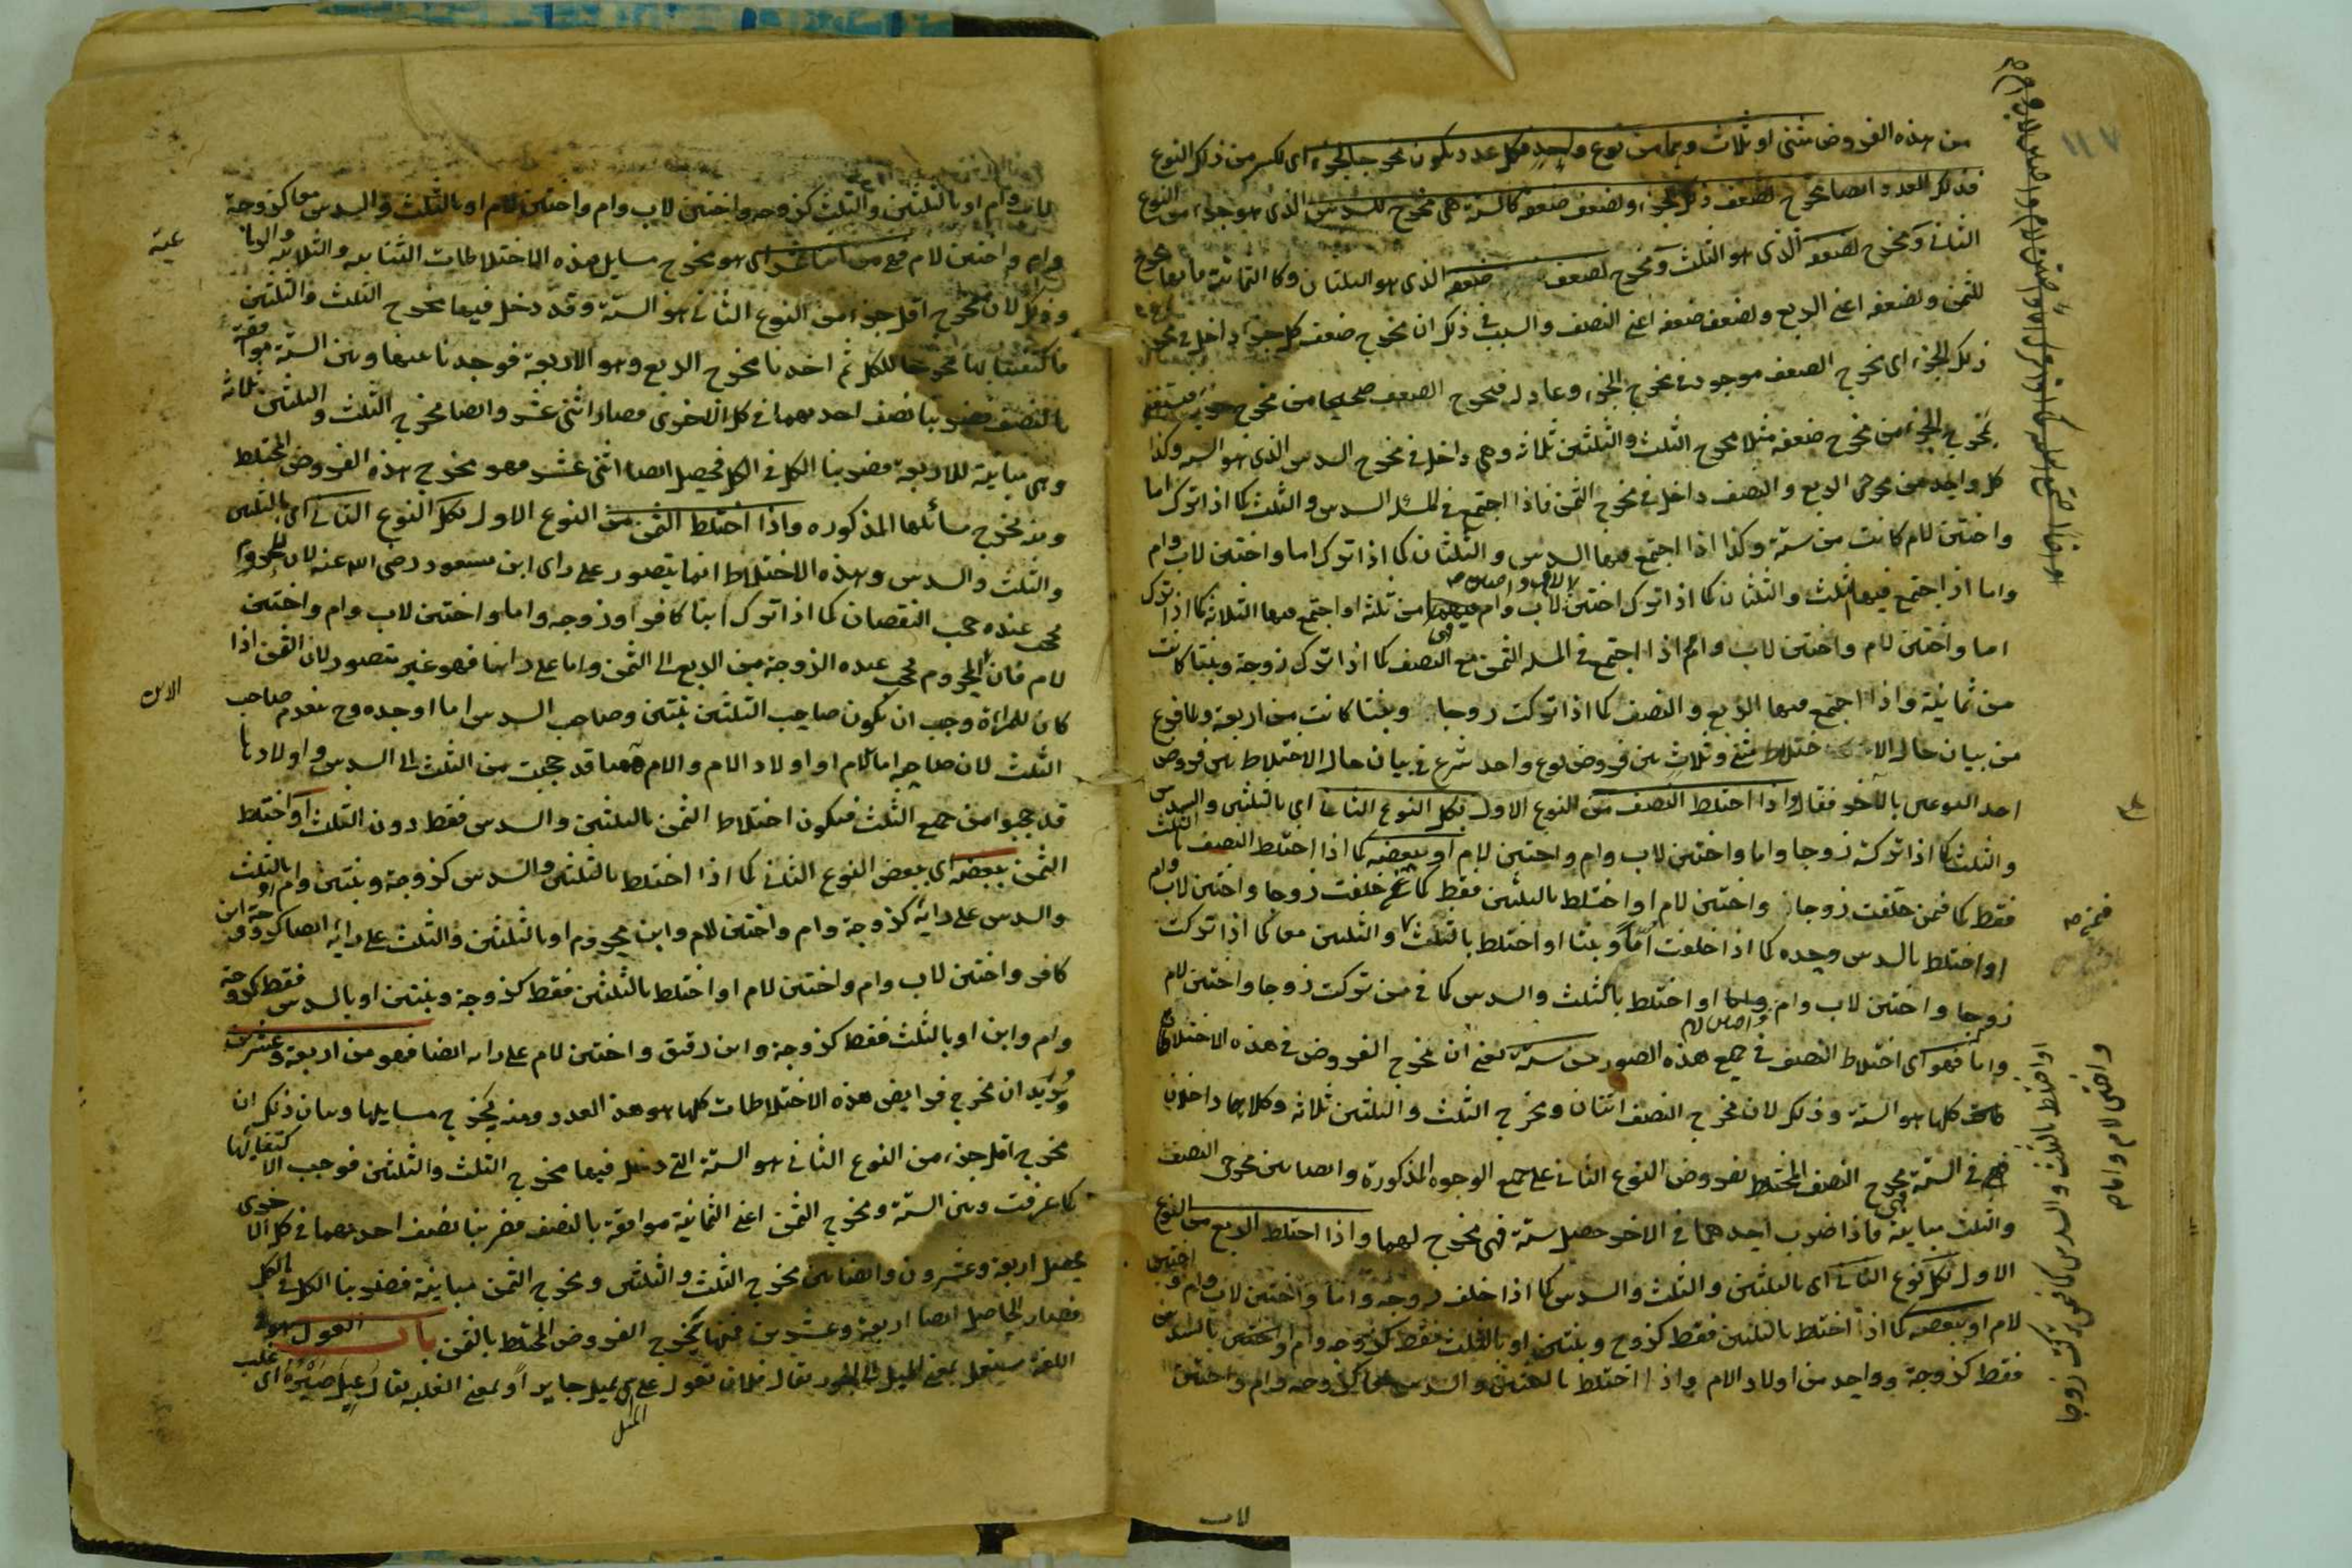 من هذه الفروض مثنى او ثلاث وهما من نوع واحد فكل عدد يكون مخرجا لجزء اى لكسر من ذلك النوع
فذلك العدد ايضا مخرج لضعف ذلك الجزء ولضعف ضعفه كالستة هى مخرج للسدس الذى هو جزء من النوع
الثانى ومخرج لضعفه الذى هو الثلث ومخرج لضعف ضعفه الذى هو الثلثان وكالثمانية فانها مخرج
للثمن ولضعفه اعنى الربع ولضعف ضعفه اعنى النصف والسبب فى ذلك ان مخرج ضعف كل جزء داخل فى مخرج
ذلك الجزء اى مخرج الضعف موجود فى مخرج الجزء وعاد له فمخرج الضعف
مخرج الجزء من مخرج ضعفه مثلا مخرج الثلث والثلثين ثلاثة وهى داخل فى مخرج السدس الذى هو الستة وكذا
كل واحد من مخرجى الربع والنصف داخل فى مخرج الثمن فاذا اجتمع فى المسئلة السدس والثلث كما اذا ترك اما
واختين لام كانت من ستة وكذا اذا اجتمع فيها السدس والثلثان كما اذا ترك اما واختين لاب وام
واما اذا اجتمع فيها الثلث والثلثان كما اذا ترك اختين لاب وام فهى من ثلثة او اجتمع فيها الثلاثة كما اذا ترك
اما واختين لام واختين لاب وام اذا اجتمع فى المسئلة الثمن مع النصف كما اذا ترك زوجة وبنتا كانت
من ثمانية واذا اجتمع فيها الربع والنصف كما اذا تركت زوجا وبنتا كانت من اربعة ولما فرغ
من بيان حال الاختلاط مثنى وثلاث بين فروض نوع واحد شرع فى بيان حال الاختلاط بين فروض
احد النوعين بالآخر فقال واذا اختلط النصف من النوع الاول بكل النوع الثانى اى بالثلثين والسدس
والثلث كما اذا تركت زوجا واما واختين لاب وام واختين لام او ببعضه كما اذا اختلط النصف بالثلث
فقط كما فيمن خلفت زوجا واختين لام او اختلط بالثلثين فقط كما خلفت زوجا واختين لاب وام
او اختلط بالسدس وحده كما اذا خلفت اما وبنتا او اختلط بالثلث والثلثين معا كما اذا تركت
زوجا واختين لاب وام او اختلط بالثلث والسدس كما فى من تركت زوجا واختين لام
واما فهو اى اختلاط النصف فى جميع هذه الصور من ستة يعنى ان مخرج الفروض فى هذه الاختلاطات
كلها هو الستة وذلك لان مخرج النصف اثنان ومخرج الثلث والثلثين ثلاثة وكلاهما داخلان
فى الستة فهى مخرج النصف المختلط بفروض النوع الثانى على جميع الوجوه المذكورة وايضا بين مخرجى النصف
والثلث مباينة فاذا ضرب احدهما فى الاخر حصل ستة فهى مخرج لهما واذا اختلط الربع من النوع
الاول بكل النوع الثانى اى بالثلثين والثلث والسدس كما اذا خلف زوجة واما واختين لاب وام واختين
لام او ببعضه كما اذا اختلط بالثلثين فقط كزوج وبنتين او بالثلث فقط كزوجة وام او اختلط بالسدس
فقط كزوجة وواحد من اولاد الام واذا اختلط بالثلثين والسدس معا كزوجة وام واختين
لاب
لاب وام او بالثلثين والثلث كزوجة واختين لاب وام واختين لام او بالثلث والسدس معا كزوجة
وام واختين لام فهو من اثنا عشر اى هو مخرج مسايل هذه الاختلاطات الثنائية والثلاثية
وذلك لان مخرج اقل جزء من النوع الثانى هو الستة وقد دخل فيها مخرج الثلث والثلثين
فاكتفينا بها مخرجا للكل ثم اخذنا مخرج الربع وهو الاربعة فوجدنا بينها وبين الستة موافقة
بالنصف فضربنا نصف احدهما فى كل الاخرى فصار اثنى عشر وايضا مخرج الثلث والثلثين ثلاثة
وهى مباينة للاربعة فضربنا الكل فى الكل فحصل ايضا اثنى عشر فهو مخرج هذه الفروض المختلط
ومنه تخرج مسائلها المذكورة واذا اختلط الثمن من النوع الاول بكل النوع الثانى اى بالثلثين
والثلث والسدس وهذه الاختلاط انما يتصور على راى ابن مسعود رضى الله عنه لان المحروم
يحجب عنده حجب النقصان كما اذا ترك ابنا كافرا وزوجة واما واختين لاب وام واختين
لام فان المحروم يحجب عنده الزوجة من الربع الى الثمن واما على راينا فهو غير متصور لان الثمن اذا
كان للمراة وجب ان يكون صاحب الثلثين بنتين وصاحب السدس اما او جده وح ينعدم صاحب
الثلث لان صاحبه اما الام او اولاد الام والام ههنا قد حجبت من الثلث الى السدس واولادها
قد حجبوا من جميع الثلث فيكون اختلاط الثمن بالثلثين والسدس فقط دون الثلث او اختلط
الثمن ببعضه اى ببعض النوع الثانى كما اذا اختلط بالثلثين والسدس كزوجة وبنتين وام او بالثلث
والسدس على رايه كزوجة وام واختين لام وابن محروم او بالثلثين والثلث على رايه ايضا كزوجة وابن
كافر واختين لاب وام واختين لام او اختلط بالثلثين فقط كزوجة وبنتين او بالسدس فقط كزوجة
وام وابن او بالثلث فقط كزوجة وابن رقيق واختين لام على رايه ايضا فهو من اربعة وعشرين
ويريد ان مخرج فرايض هذه الاختلاطات كلها هو هذا العدد ومنه يخرج مسايلها وبيان ذلك ان
مخرج اقل جزء من النوع الثانى هو الستة التى دخل فيها مخرج الثلث والثلثين فوجب الاكتفا بها
كما عرفت وبين الستة ومخرج الثمن اعنى الثمانية موافقة بالنصف فضربنا نصف احديهما فى كل الاخرى
يحصل اربعة وعشرون وايضا بين مخرج الثلث والثلثين ومخرج الثمن مباينة فضربنا الكل فى الكل
فصار الحاصل ايضا اربعة وعشرين فمنها يخرج الفروض المختلط بالثمن باب العول هو فى
اللغة يستعمل بمعنى الميل الى الجور يقال فلان يعول على اى يميل جاير او بمعنى الغلبة يقال عيل صبره اى غلب